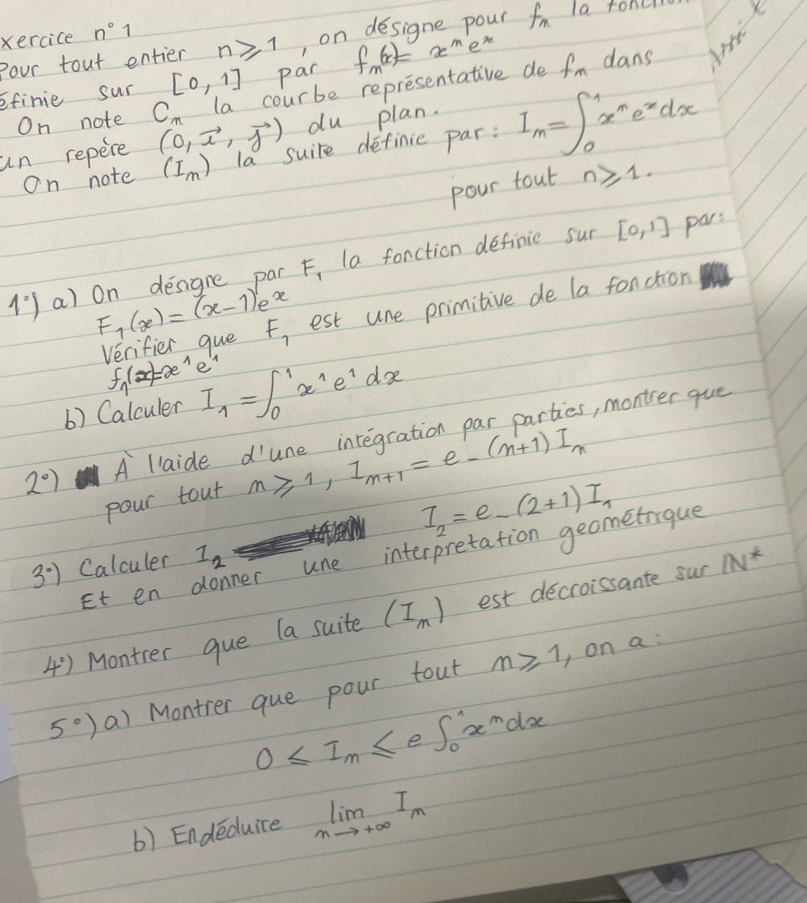 xercice n°1
Pour tout entier n⩾1, on désigne pour fₙ la
éfinie sur [0,1] par fₙ(x)= xⁿeˣ
On note Cₙ la courbe représentative de fₙ dans
un repère (O, i⃗, j⃗) du plan.
On note (Iₙ) la suite définie par : Iₙ=∫₀¹ xⁿeˣdx
pour tout n⩾1.
1°) a) On désigne par F₁ la fonction définie sur [0,1] par:
F₁(x)=(x-1)eˣ
Vérifier que F₁ est une primitive de la fonction
f₁(x)=x¹e¹
b) Calculer I₁ =∫₀¹ x¹e¹dx
2°) À l'aide d'une intégration par parties, montrer que
pour tout n⩾1, Iₙ₊₁ = e-(n+1)Iₙ
3°) Calculer I₂ I₂=e-(2+1)I₁
Et en donner une interpretation geométrique
4°) Montrer que la suite (Iₙ) est décroissante sur ℕ*
5°) a) Montrer que pour tout n⩾1, on a:
0 ⩽ Iₙ ⩽ e∫₀¹xⁿdx
b) En déduire lim Iₙ
n→+∞